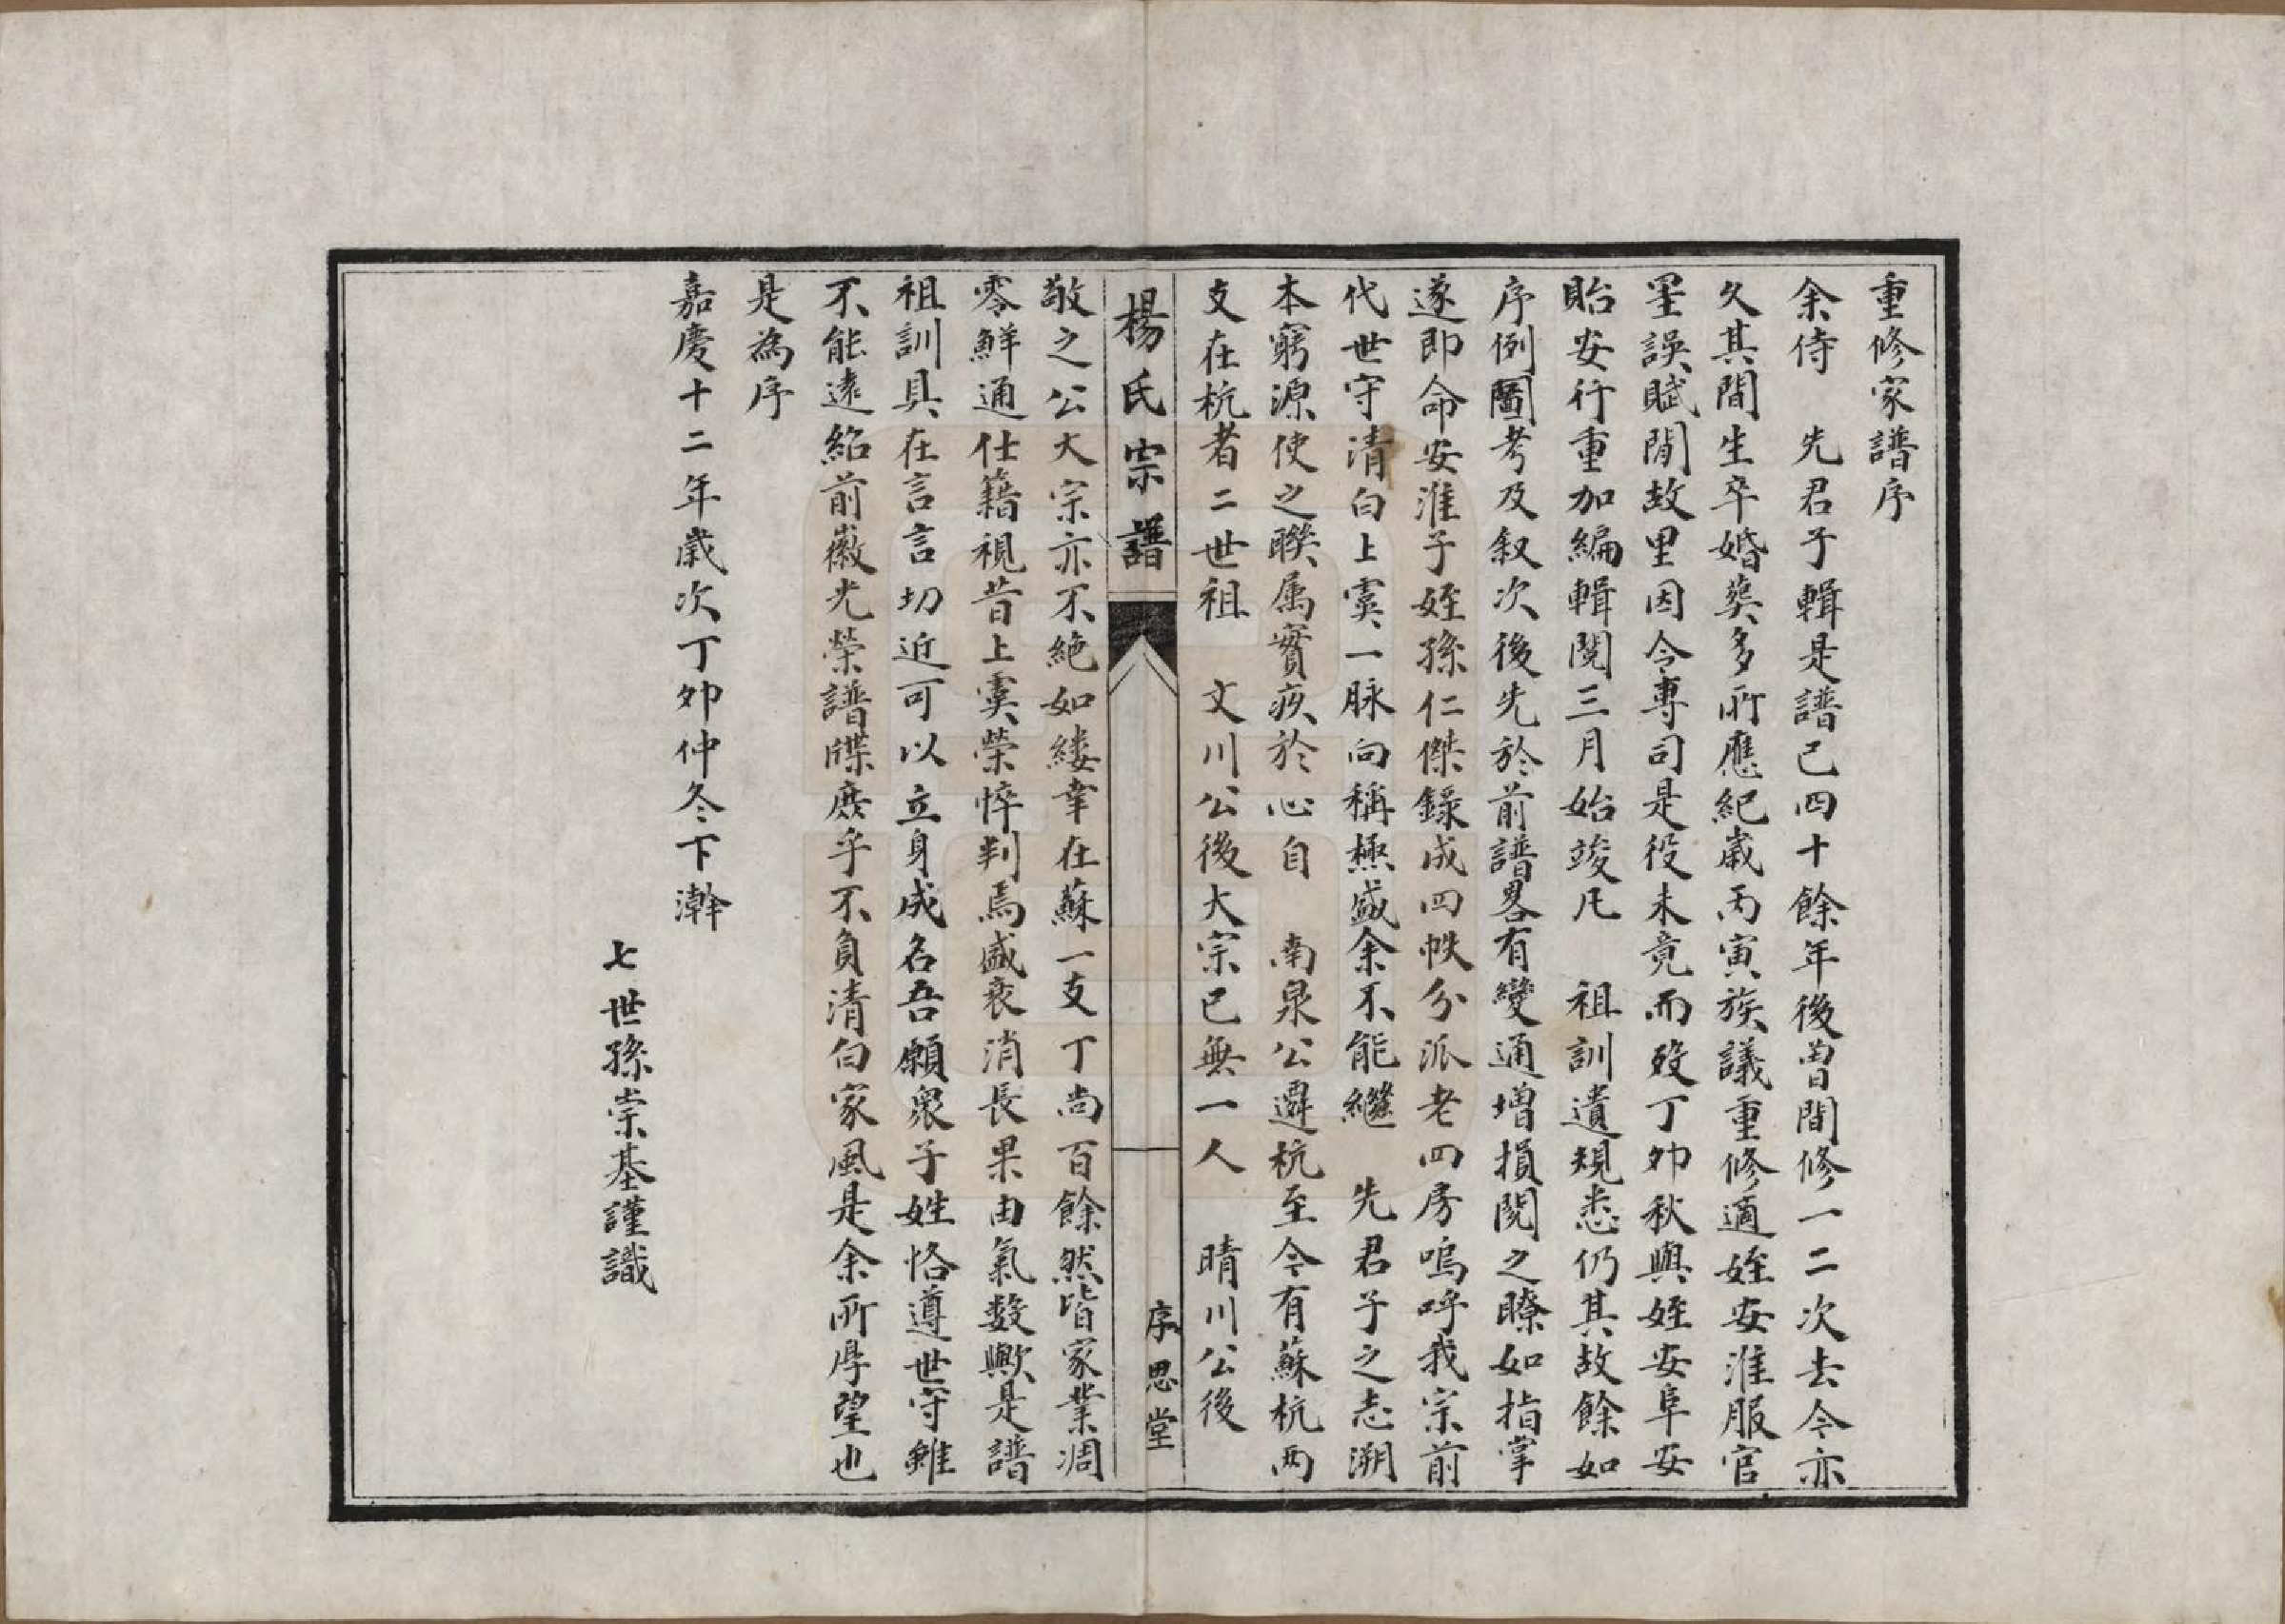 重修家譜序
余侍　先君子輯是譜已四十餘年後曽間修一二次去今亦
久其間生卒婚葬多所應紀歲丙寅族議重修適姪安淮服官
罣誤賦閒故里因令專司是役未竟而歿丁卯秋與姪安阜安
貽安行重加編輯閱三月始竣凡　祖訓遺規悉仍其故餘如
序例圖考及叙次後先於前譜畧有變通增損閱之瞭如指掌
遂即命安淮子姪孫仁傑錄成四帙分派老四房嗚呼我宗前
代世守清白上虞一脉向稱極盛余不能繼　先君子之志溯
本窮源使之聨属實疚於心自　南泉公遷杭至今有蘇杭兩
支在杭者二世祖　文川公後大宗已無一人　晴川公後
楊氏宗譜
序思堂
敬之公大宗亦不絶如縷幸在蘇一支丁尚百餘然皆家業凋
零鮮通仕籍視昔上虞榮悴判焉盛衰消長果由氣数歟是譜
祖訓具在言言切近可以立身成名吾願衆子姓恪遵世守雖
不能遠紹前徽光榮譜牒庶乎不負清白家風是余所厚望也
是為序
嘉慶十二年歲次丁卯仲冬下澣
七世孫崇基謹識